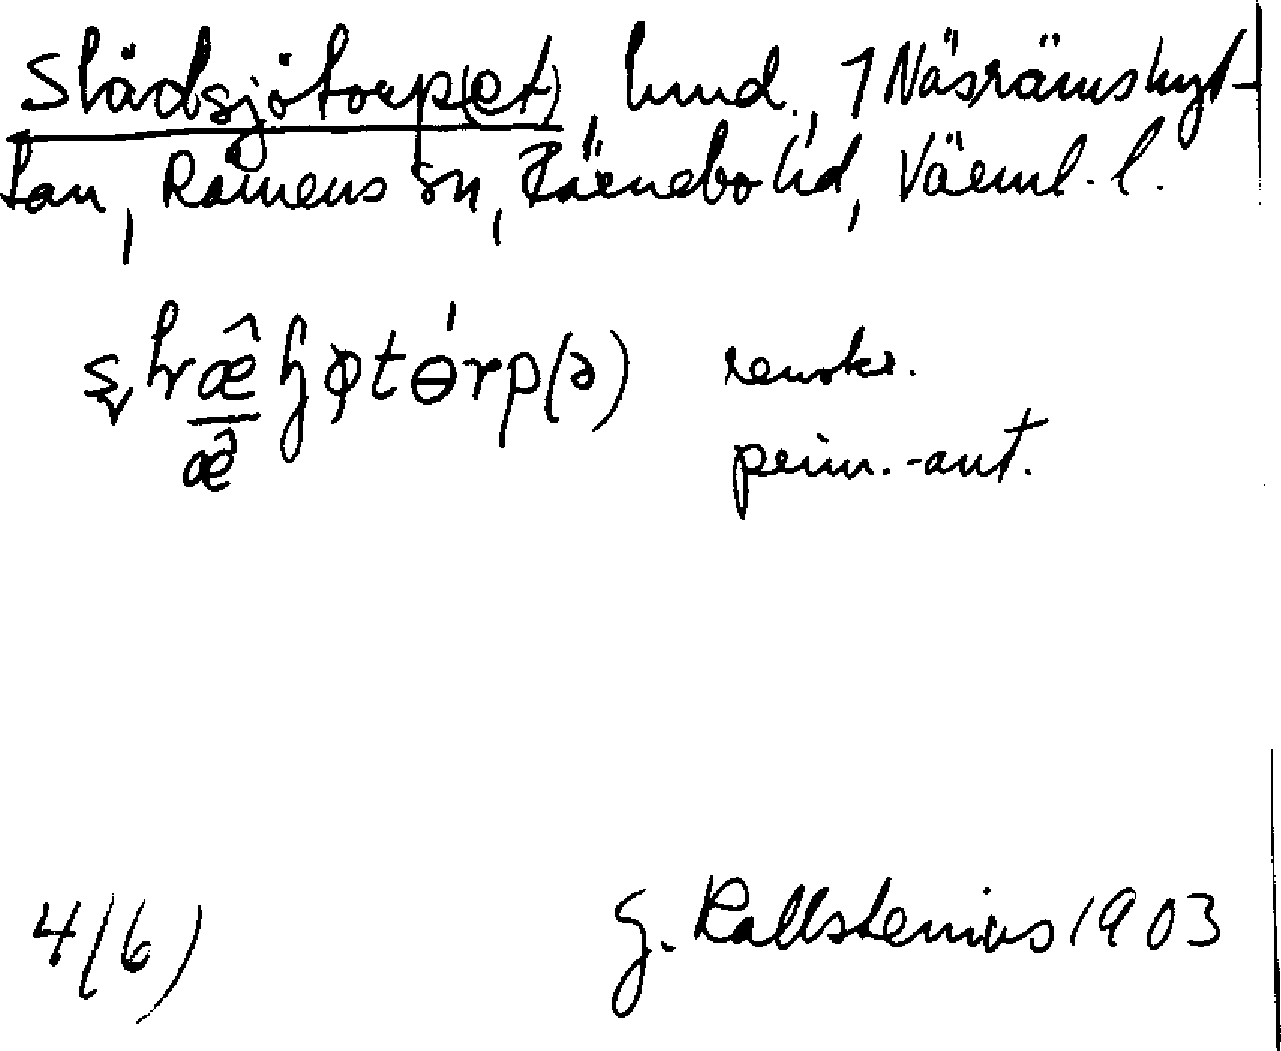 Slädsjötorp(et), hmd., 1 Näsrämshyt-
tan, Rämens sn, Färnebo hd, Värml. l.
renskr.
prim.-ant.
4/6) G. Kallstenius 1903